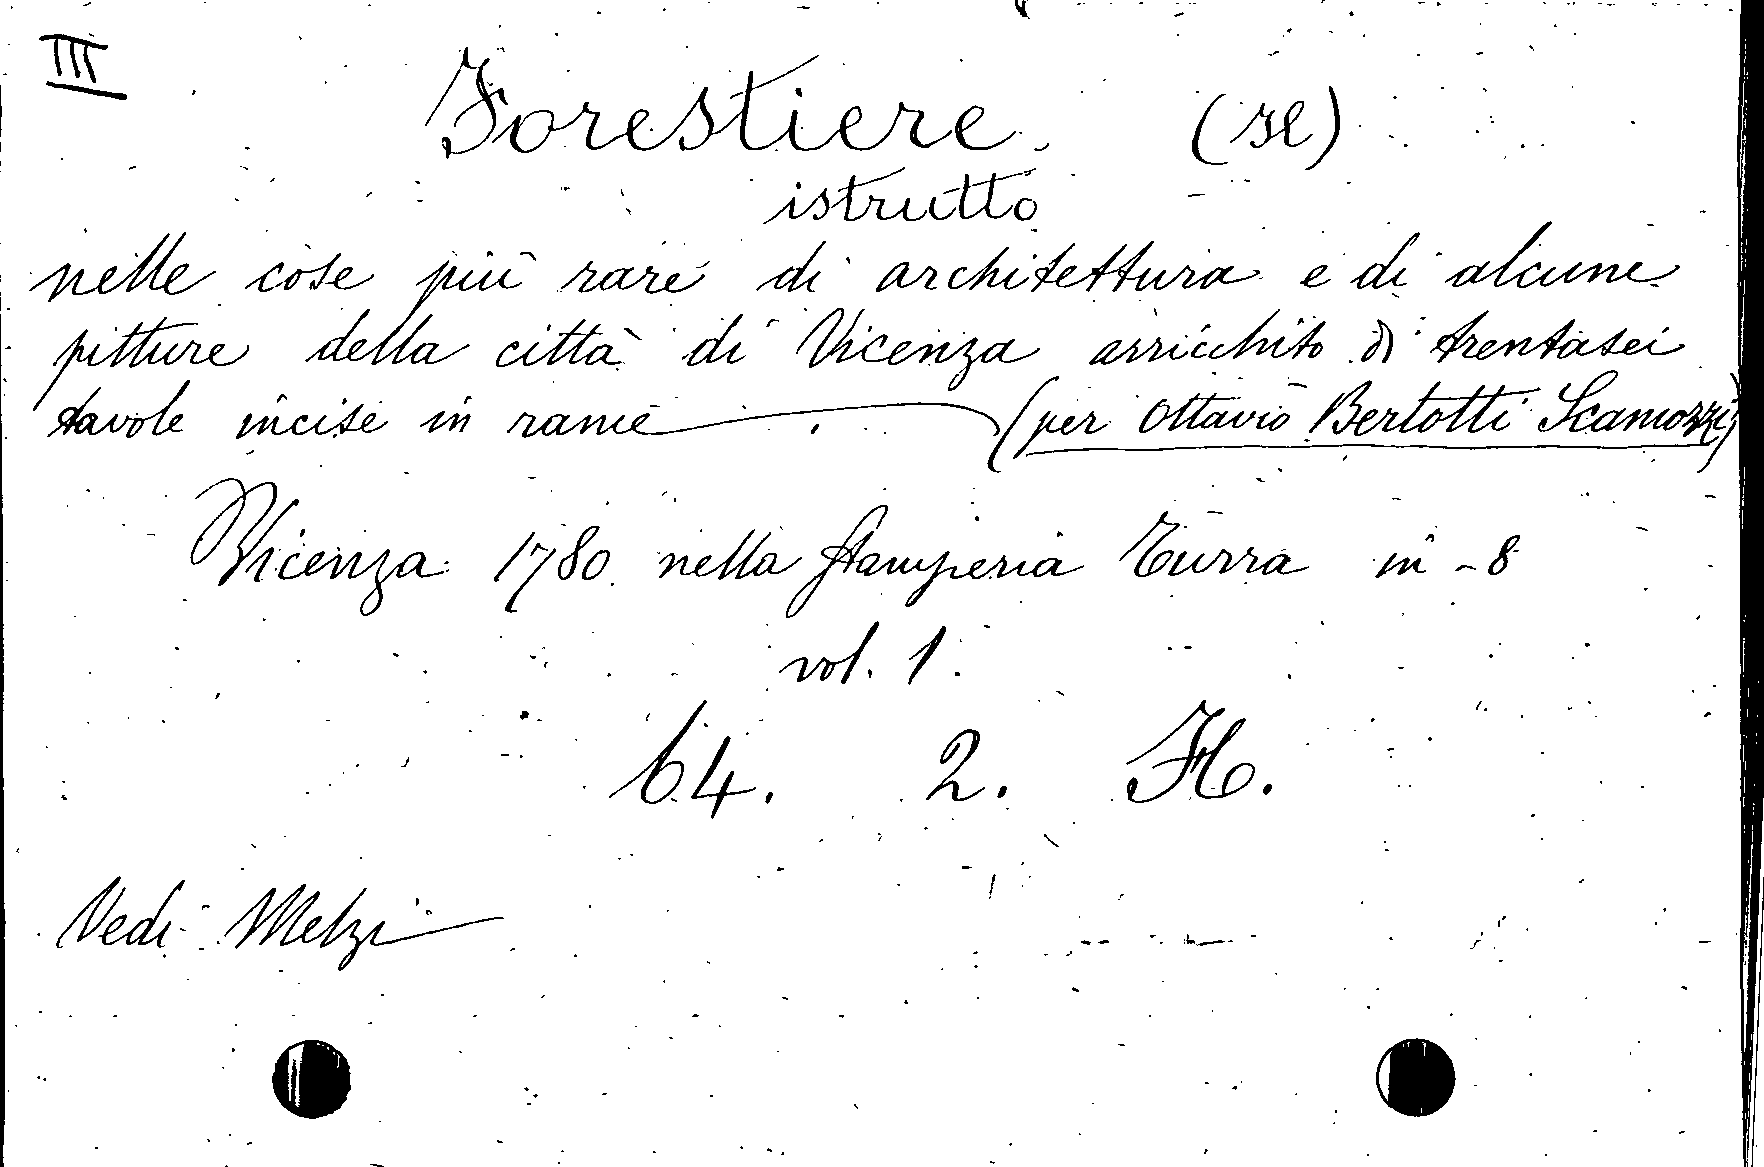 III
Forestiere (Il)
istrutto
nelle cose più rare di architettura e di alcune
pitture della città di Vicenza arricchito di trentasei
tavole incise in rame — (per Ottavio Bertotti Scamozzi)
Vicenza 1780 nella Stamperia Turra in-8
vol. 1.
64. 2. H.
Vedi Melzi